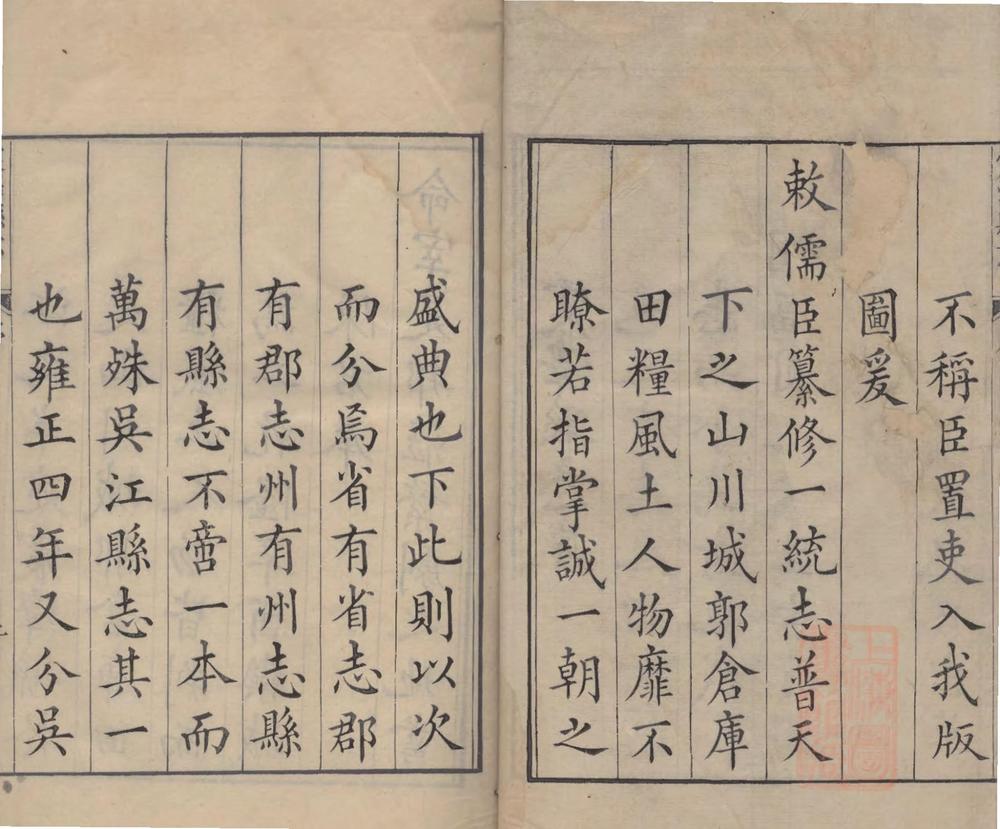 不稱臣置吏入我版
圖爰
敕儒臣纂修一統志普天
下之山川城郭倉庫
田糧風土人物靡不
瞭若指掌誠一朝之
盛典也下此則以次
而分焉省有省志郡
有郡志州有州志縣
有縣志不啻一本而
萬殊吳江縣志其一
也雍正四年又分吳